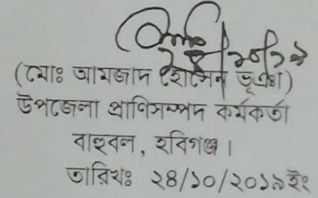 (মোঃ আমজাদ হোসেন ভূঞা)
উপজেলা প্রাণিসম্পদ কর্মকর্তা
বাহুবল, হবিগঞ্জ।
তারিখঃ ২৪/১০/২০১৯ইং